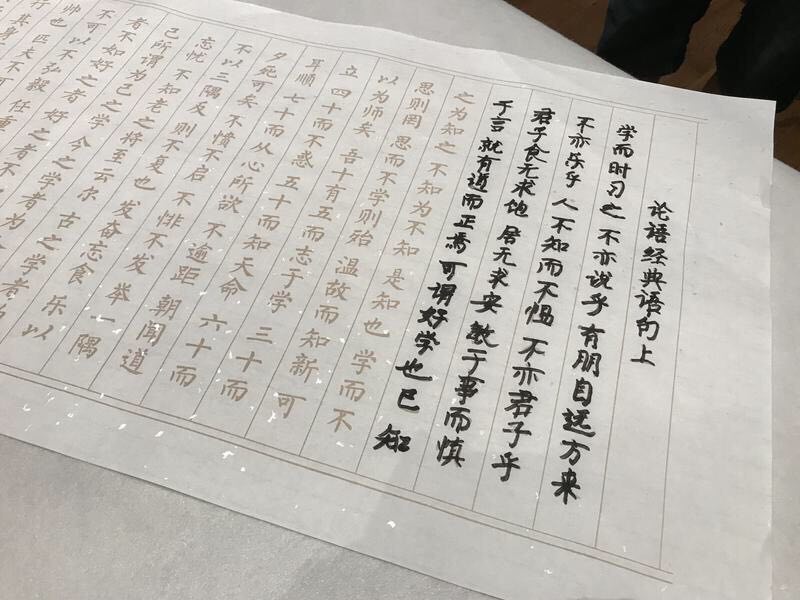 论语经典语句上
学而时习之 不亦说乎 有朋自远方来
不亦乐乎 人不知而不愠 不亦君子乎
君子食无求饱 居无求安 敏于事而慎
于言 就有道而正焉 可谓好学也已 知
之为知之 不知为不知 是知也 学而不
思则罔 思而不学则殆 温故而知新 可
以为师矣 吾十有五而志于学 三十而
立 四十而不惑 五十而知天命 六十而
耳顺 七十而从心所欲 不逾距 朝闻道
夕死可矣 不愤不启 不悱不发 举一隅
不以三隅反 则不复也 发奋忘食 乐以
忘忧 不知老之将至云尔 古之学者为
己 所谓为己之学 今之学者为
者不如好之者 好之者不
不可以不弘毅 任重
帅也 匹夫不可
行 其身